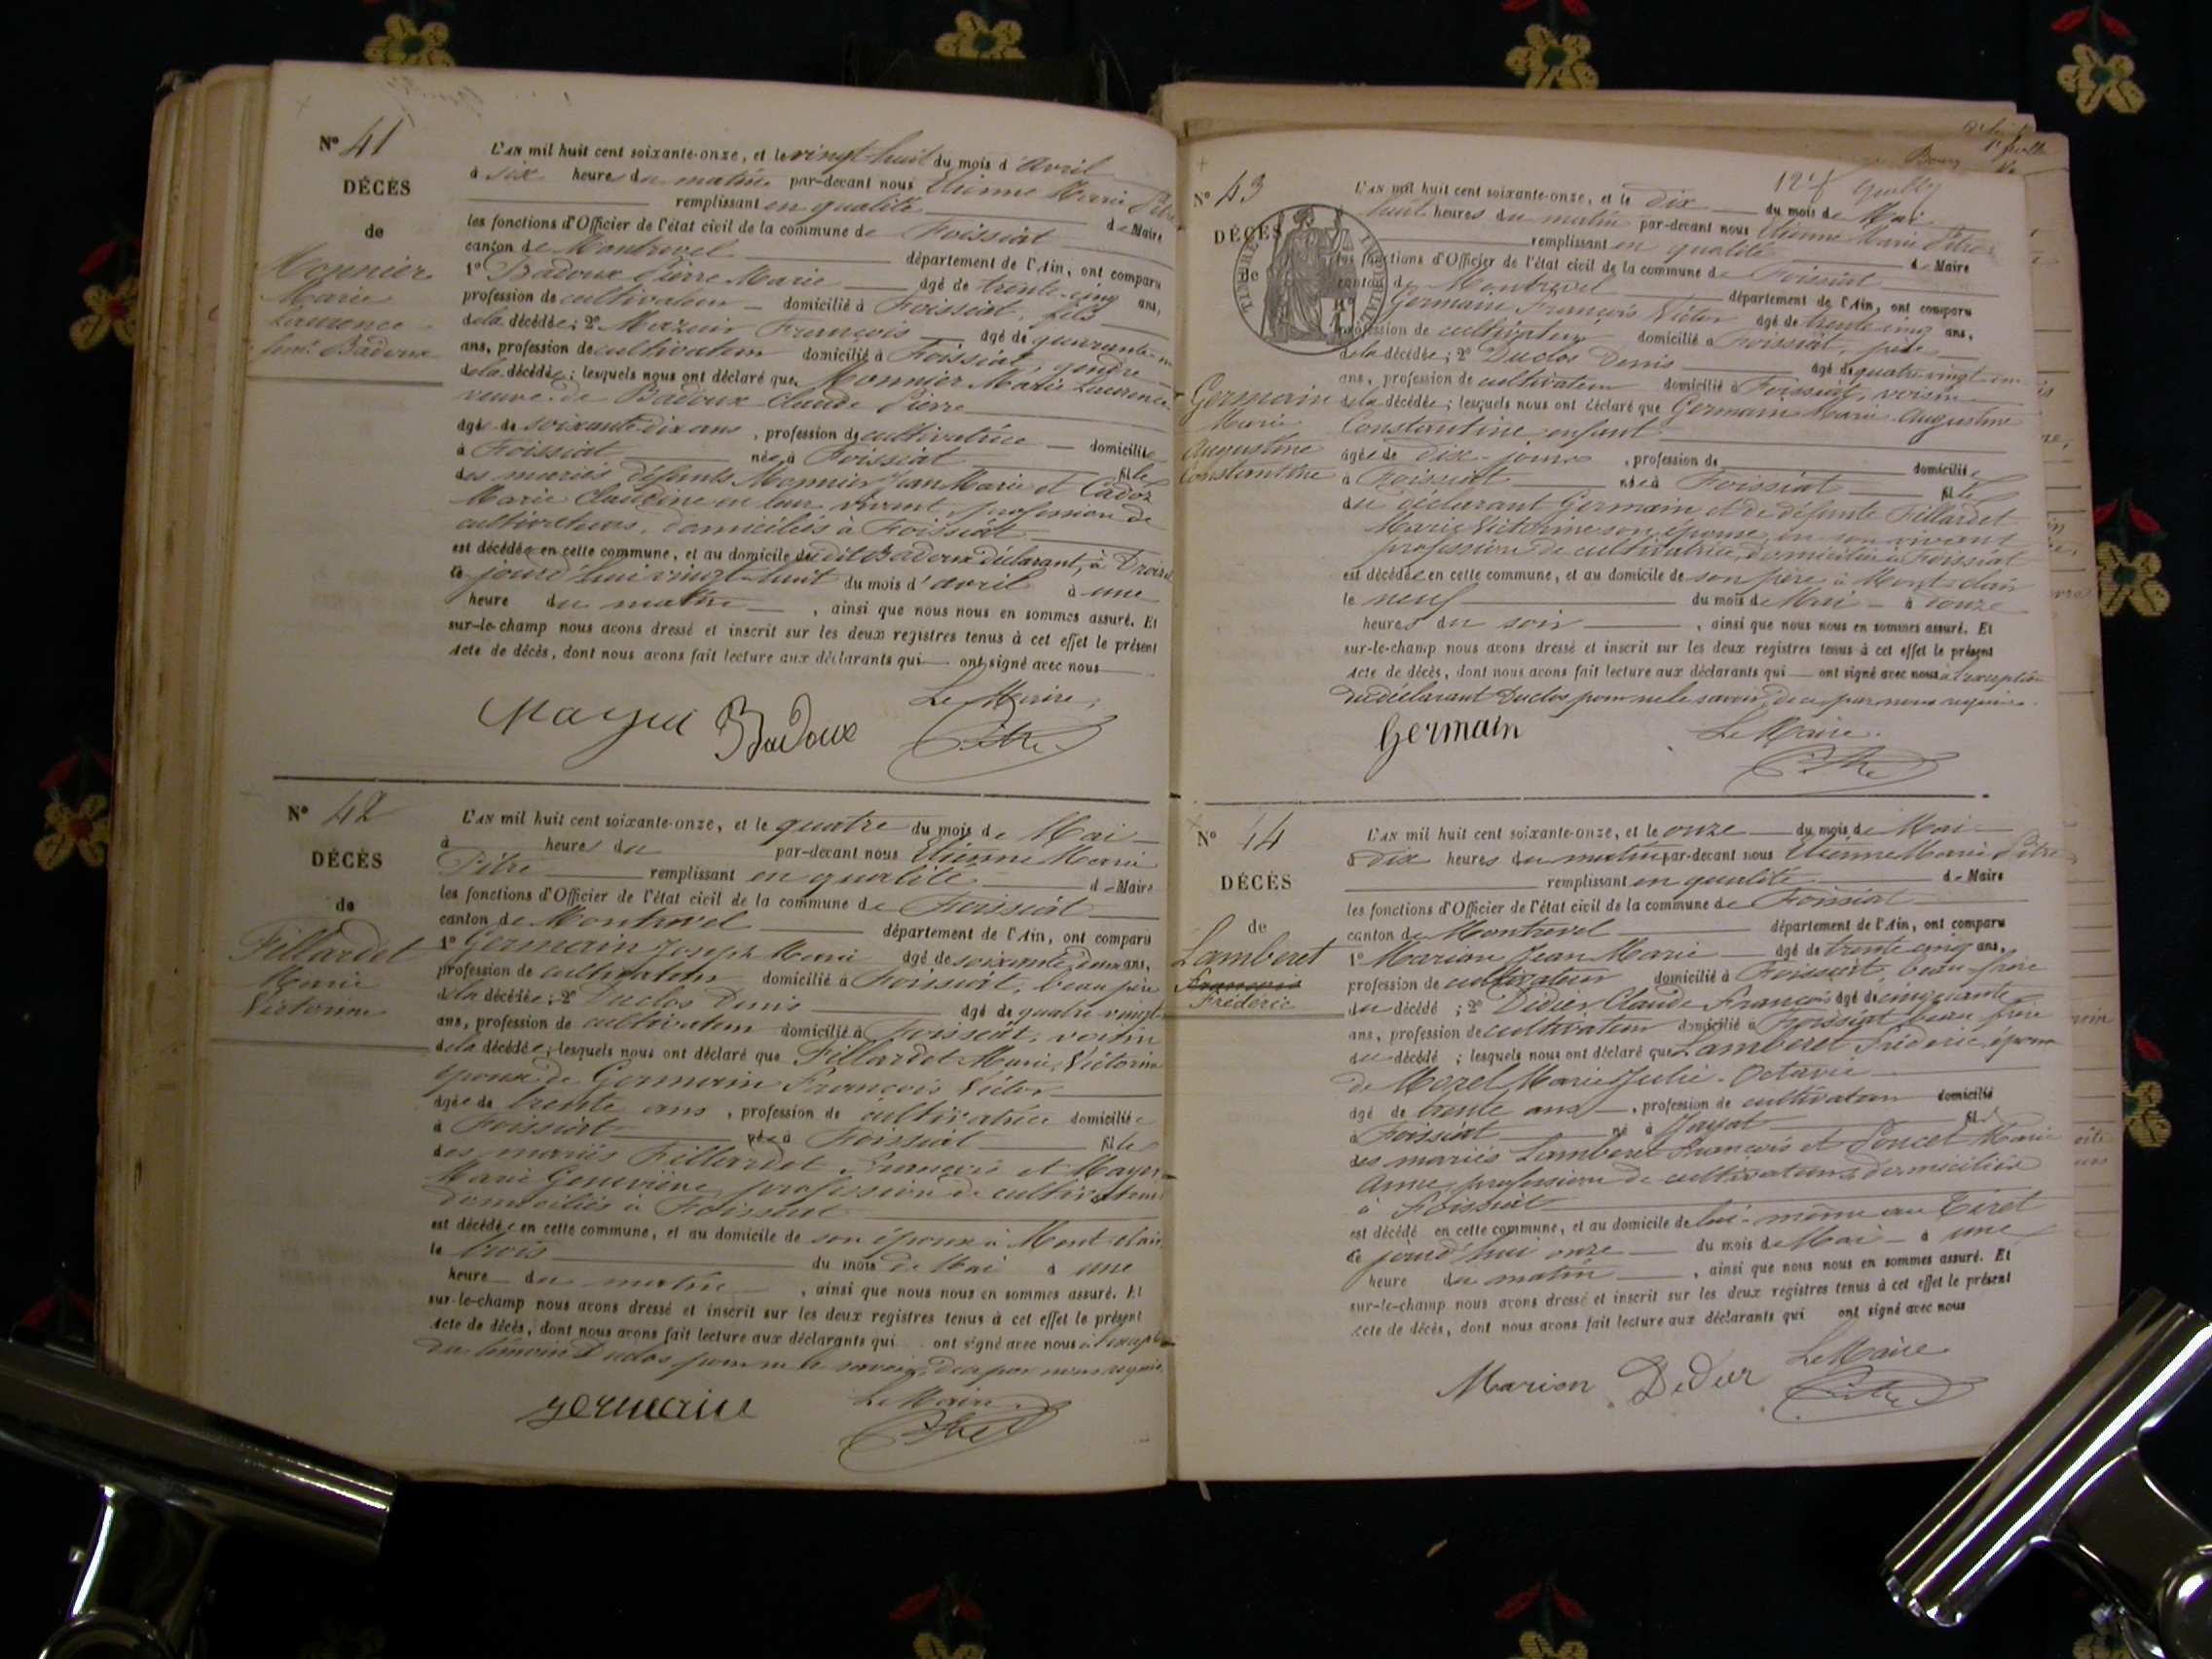 N° 41
DÉCÈS
de
Monnier
Marie
Laurence
fem. Badoux
L'AN mil huit cent soixante-onze, et le vingt-huit du mois d'Avril
à six heures du matin par-devant nous Etienne Marie Pitre
remplissant en qualité de Maire
les fonctions d'Officier de l'état civil de la commune de Foissiat
canton de Montrevel département de l'Ain, ont comparu
1° Badoux Pierre Marie âgé de trente-cinq ans,
profession de cultivateur domicilié à Foissiat, fils
de la décédée; 2° François âgé de quarante
ans, profession de cultivateur domicilié à Foissiat, gendre
de la décédée; lesquels nous ont déclaré que Monnier Marie Laurence
veuve de Badoux Claude Pierre
âgée de soixante-dix ans, profession de cultivatrice domiciliée
à Foissiat née à Foissiat fille
des mariés défunts Monnier Jean Marie et Cadoz
Marie Claudine en leur vivant profession de
cultivateurs, domiciliés à Foissiat
est décédée en cette commune, et au domicile dudit Badoux déclarant, à
ce jourd'hui vingt-huit du mois d'avril à une
heure du matin, ainsi que nous nous en sommes assuré. Et
sur-le-champ nous avons dressé et inscrit sur les deux registres tenus à cet effet le présent
Acte de décès, dont nous avons fait lecture aux déclarants qui ont signé avec nous
Le Maire,
Badoux Pitre
N° 42
DÉCÈS
de
Fillardet
Marie
Victorine
L'AN mil huit cent soixante-onze, et le quatre du mois de Mai
à heures du par-devant nous Etienne Marie
Pitre remplissant en qualité de Maire
les fonctions d'Officier de l'état civil de la commune de Foissiat
canton de Montrevel département de l'Ain, ont comparu
1° Germain Joseph Marie âgé de soixante-deux ans,
profession de cultivateur domicilié à Foissiat, beau père
de la décédée; 2° Duclos Denis âgé de quatre vingt
ans, profession de cultivateur domicilié à Foissiat, voisin
de la décédée; lesquels nous ont déclaré que Fillardet Marie Victorine
épouse de Germain François Victor
âgée de trente ans, profession de cultivatrice domiciliée
à Foissiat née à Foissiat fille
des mariés Fillardet François et
Marie Geneviève, profession de cultivateurs
domiciliés à Foissiat
est décédée en cette commune, et au domicile de son époux à Mont-clair
le trois du mois de Mai à une
heure du matin, ainsi que nous nous en sommes assuré. Et
sur-le-champ nous avons dressé et inscrit sur les deux registres tenus à cet effet le présent
Acte de décès, dont nous avons fait lecture aux déclarants qui ont signé avec nous à l'exception
du témoin Duclos pour ne le savoir, de ce par nous requis
germain
Le Maire
Pitre
N° 43
DÉCÈS
de
TIMBRE IMPÉRIAL
Germain
Marie
Augustine
Constantine
L'AN mil huit cent soixante-onze, et le dix du mois de Mai
huit heures du matin par-devant nous Etienne Marie Pitre
remplissant en qualité de Maire
les fonctions d'Officier de l'état civil de la commune de Foissiat
canton de Montrevel département de l'Ain, ont comparu
1° Germain François Victor âgé de trente cinq ans,
profession de cultivateur domicilié à Foissiat, père
de la décédée; 2° Duclos Denis âgé de quatre-vingt-un
ans, profession de cultivateur domicilié à Foissiat, voisin
de la décédée; lesquels nous ont déclaré que Germain Marie Augustine
Constantine enfant
âgée de dix-jours, profession de domiciliée
à Foissiat née à Foissiat fille
du déclarant Germain et de défunte Fillardet
Marie Victorine son épouse en son vivant
profession de cultivatrice, domiciliée à Foissiat
est décédée en cette commune, et au domicile de son père à Mont-clair
le neuf du mois de Mai à onze
heures du soir, ainsi que nous nous en sommes assuré. Et
sur-le-champ nous avons dressé et inscrit sur les deux registres tenus à cet effet le présent
Acte de décès, dont nous avons fait lecture aux déclarants qui ont signé avec nous à l'exception
du déclarant Duclos pour ne le savoir, de ce par nous requis
Germain
Le Maire
Pitre
N° 44
DÉCÈS
de
Lamberet
François
Frédéric
L'AN mil huit cent soixante-onze, et le onze du mois de Mai
à dix heures du matin par-devant nous Etienne Marie Pitre
remplissant en qualité de Maire
les fonctions d'Officier de l'état civil de la commune de Foissiat
canton de Montrevel département de l'Ain, ont comparu
1° Marion Jean Marie âgé de trente cinq ans,
profession de cultivateur domicilié à Foissiat, beau-frère
du décédé; 2° Didier Claude François âgé de cinquante
ans, profession de cultivateur domicilié à Foissiat beau frère
du décédé; lesquels nous ont déclaré que Lamberet Frédéric, époux
de Morel Marie Julie-Octavie
âgé de trente ans, profession de cultivateur domicilié
à Foissiat né à Jayat fils
des mariés Lamberet François et Poncet Marie
Anne, profession de cultivateurs domiciliés
à Foissiat
est décédé en cette commune, et au domicile de lui-même au Tiret
ce jourd'hui onze du mois de Mai à une
heure du matin, ainsi que nous nous en sommes assuré. Et
sur-le-champ nous avons dressé et inscrit sur les deux registres tenus à cet effet le présent
Acte de décès, dont nous avons fait lecture aux déclarants qui ont signé avec nous
Le Maire
Marion Didier Pitre